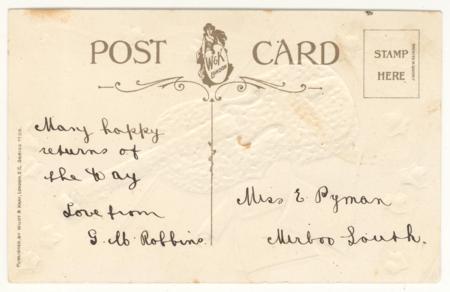 POST CARD
W&K
LONDON
STAMP
HERE
PUBLISHED BY WILDT & KRAY, LONDON, E.C. SERIES 1109
Many happy
returns of
the Day
Love from
G. M. Robbins.
Miss E Pyman
Mirboo South.